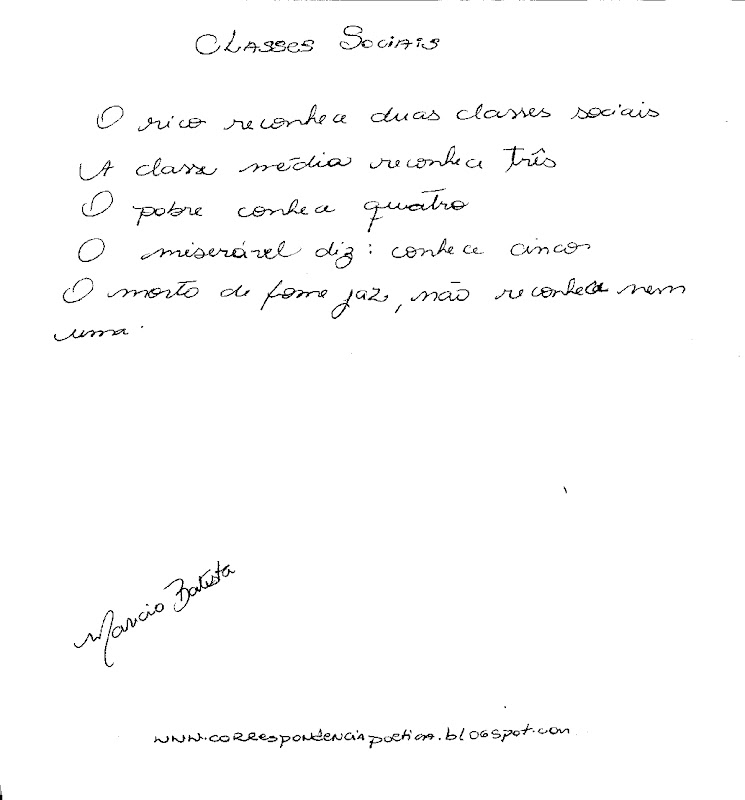 Classes Sociais
O rico reconhece duas classes sociais
A classe média reconhece três
O pobre conhece quatro
O miserável diz: conhece cinco
O morto de fome jaz, não reconhece nem
uma.
Marcio Batista
www.correspondenciapoetica.blogspot.com